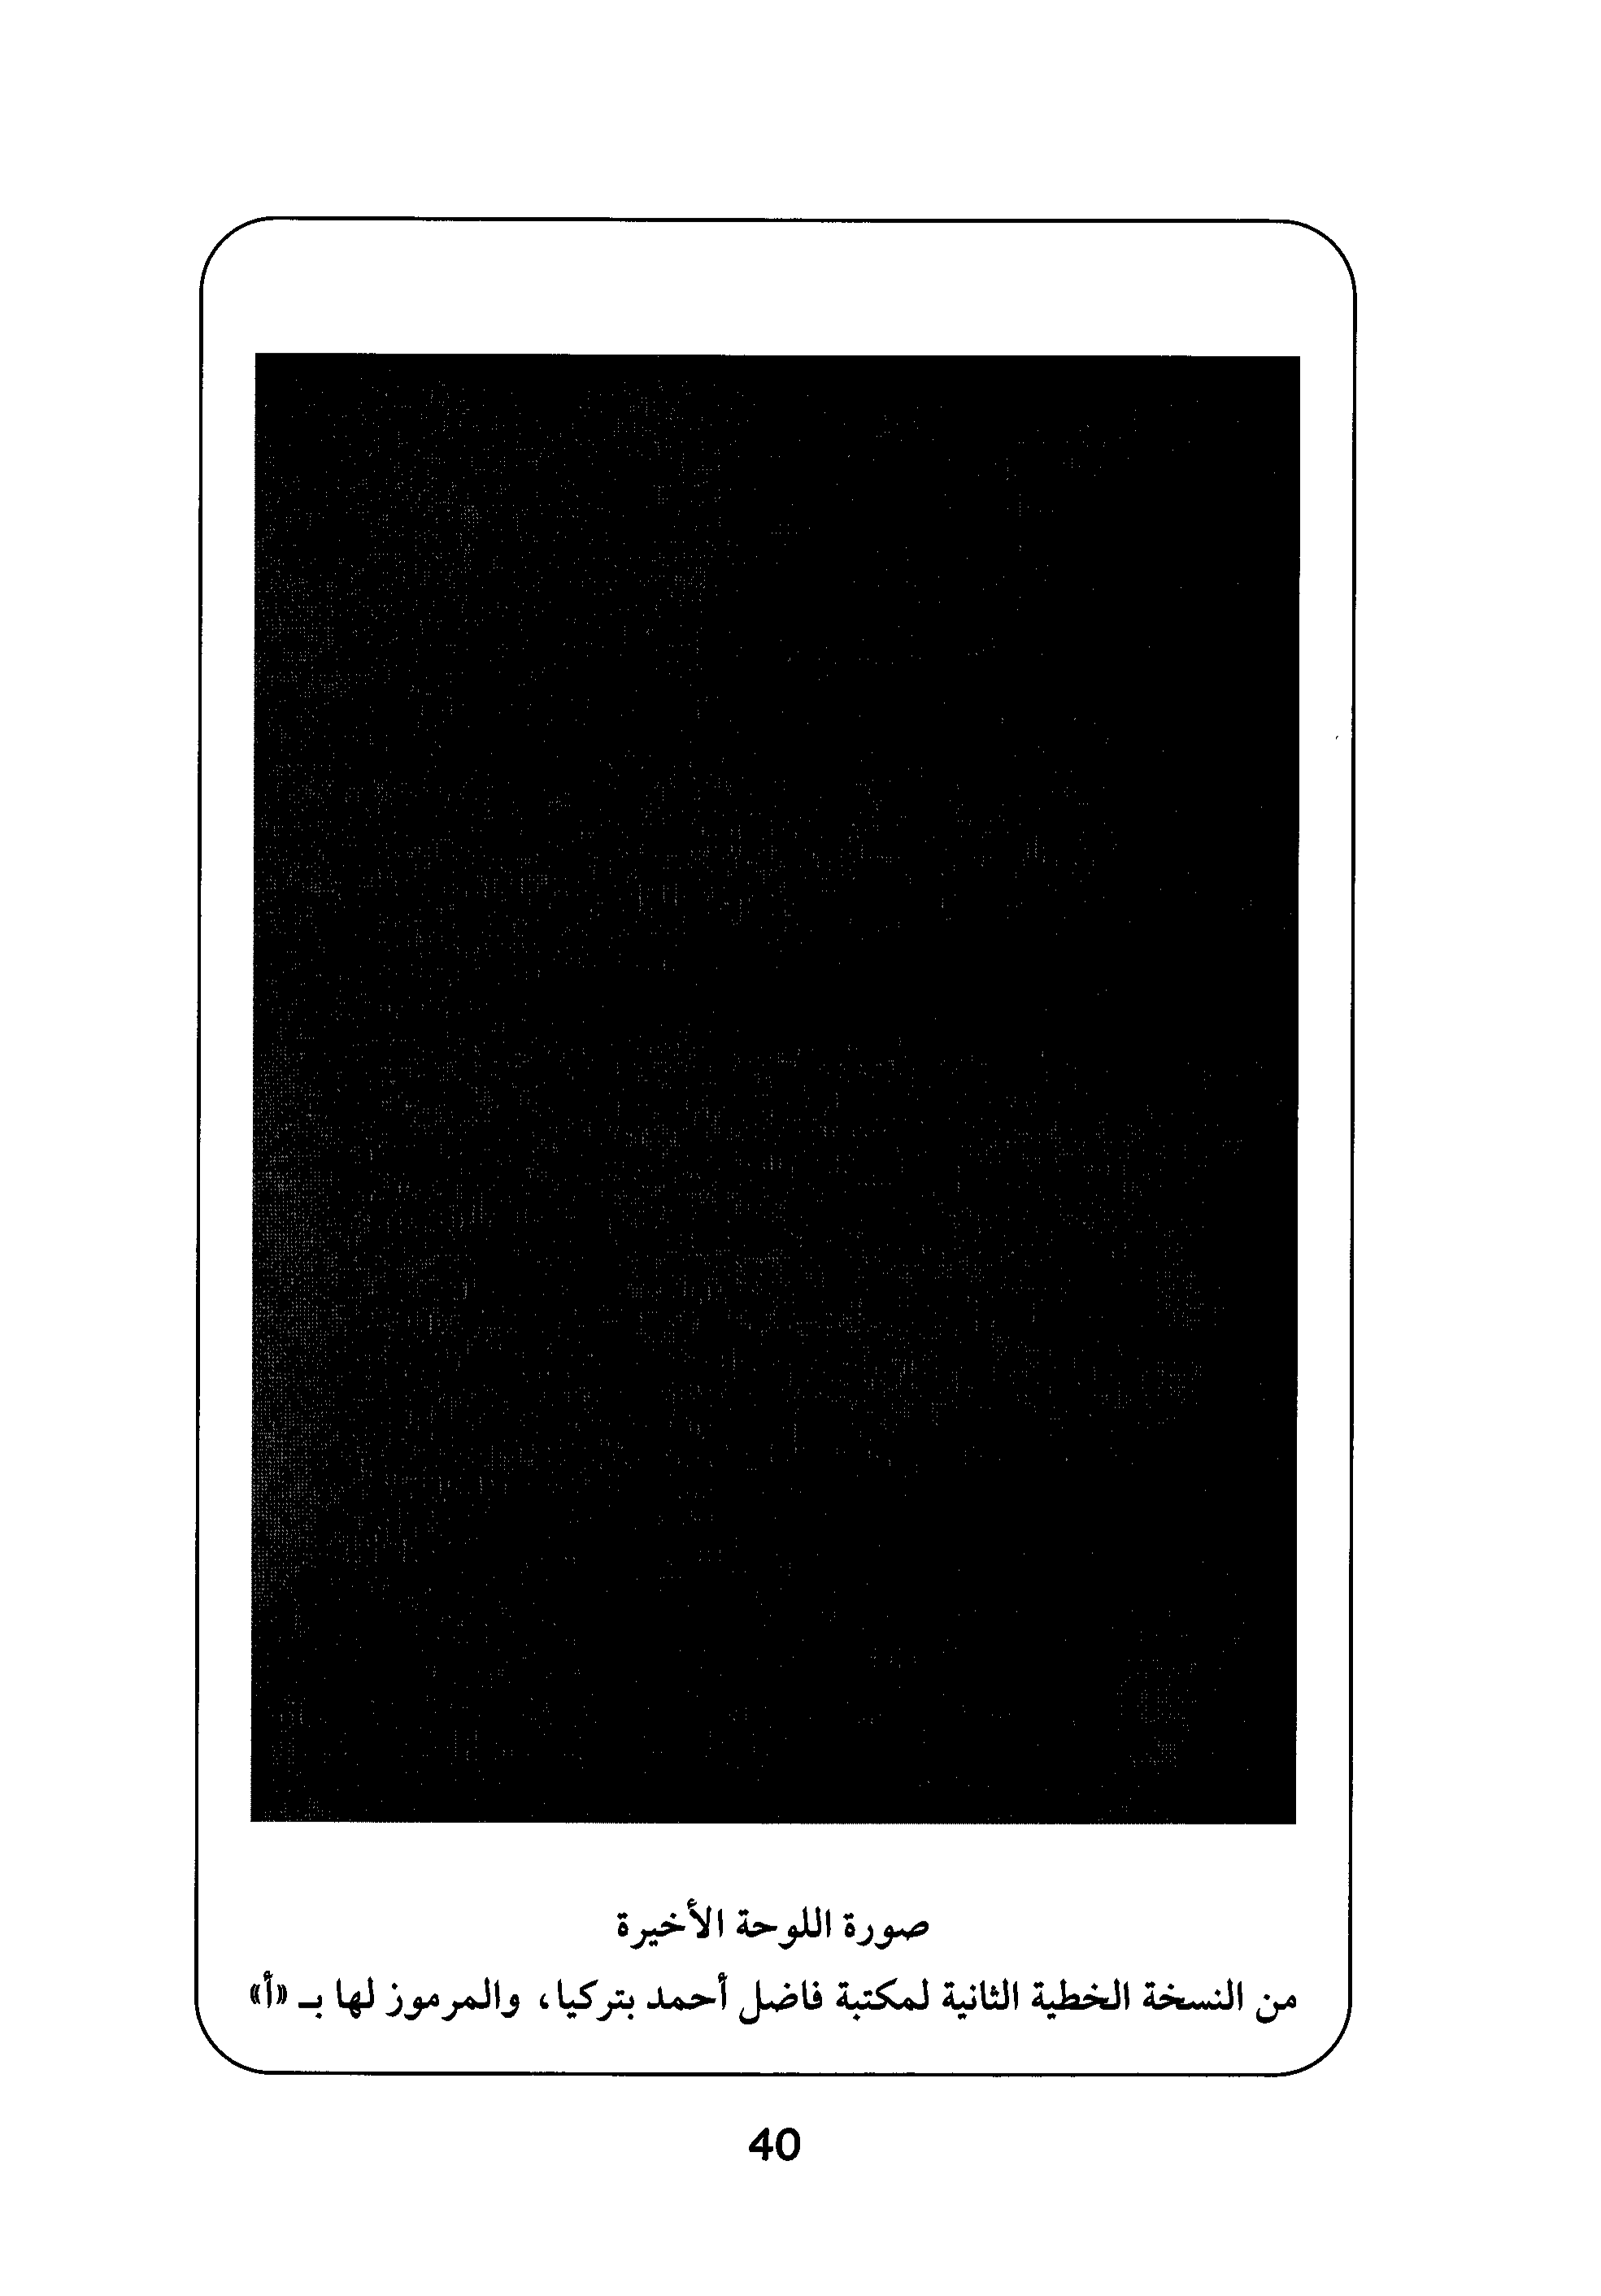 صورة اللوحة الأخيرة
من النسخة الخطية الثانية لمكتبة فاضل أحمد بتركيا، والمرموز لها بـ «أ»
40